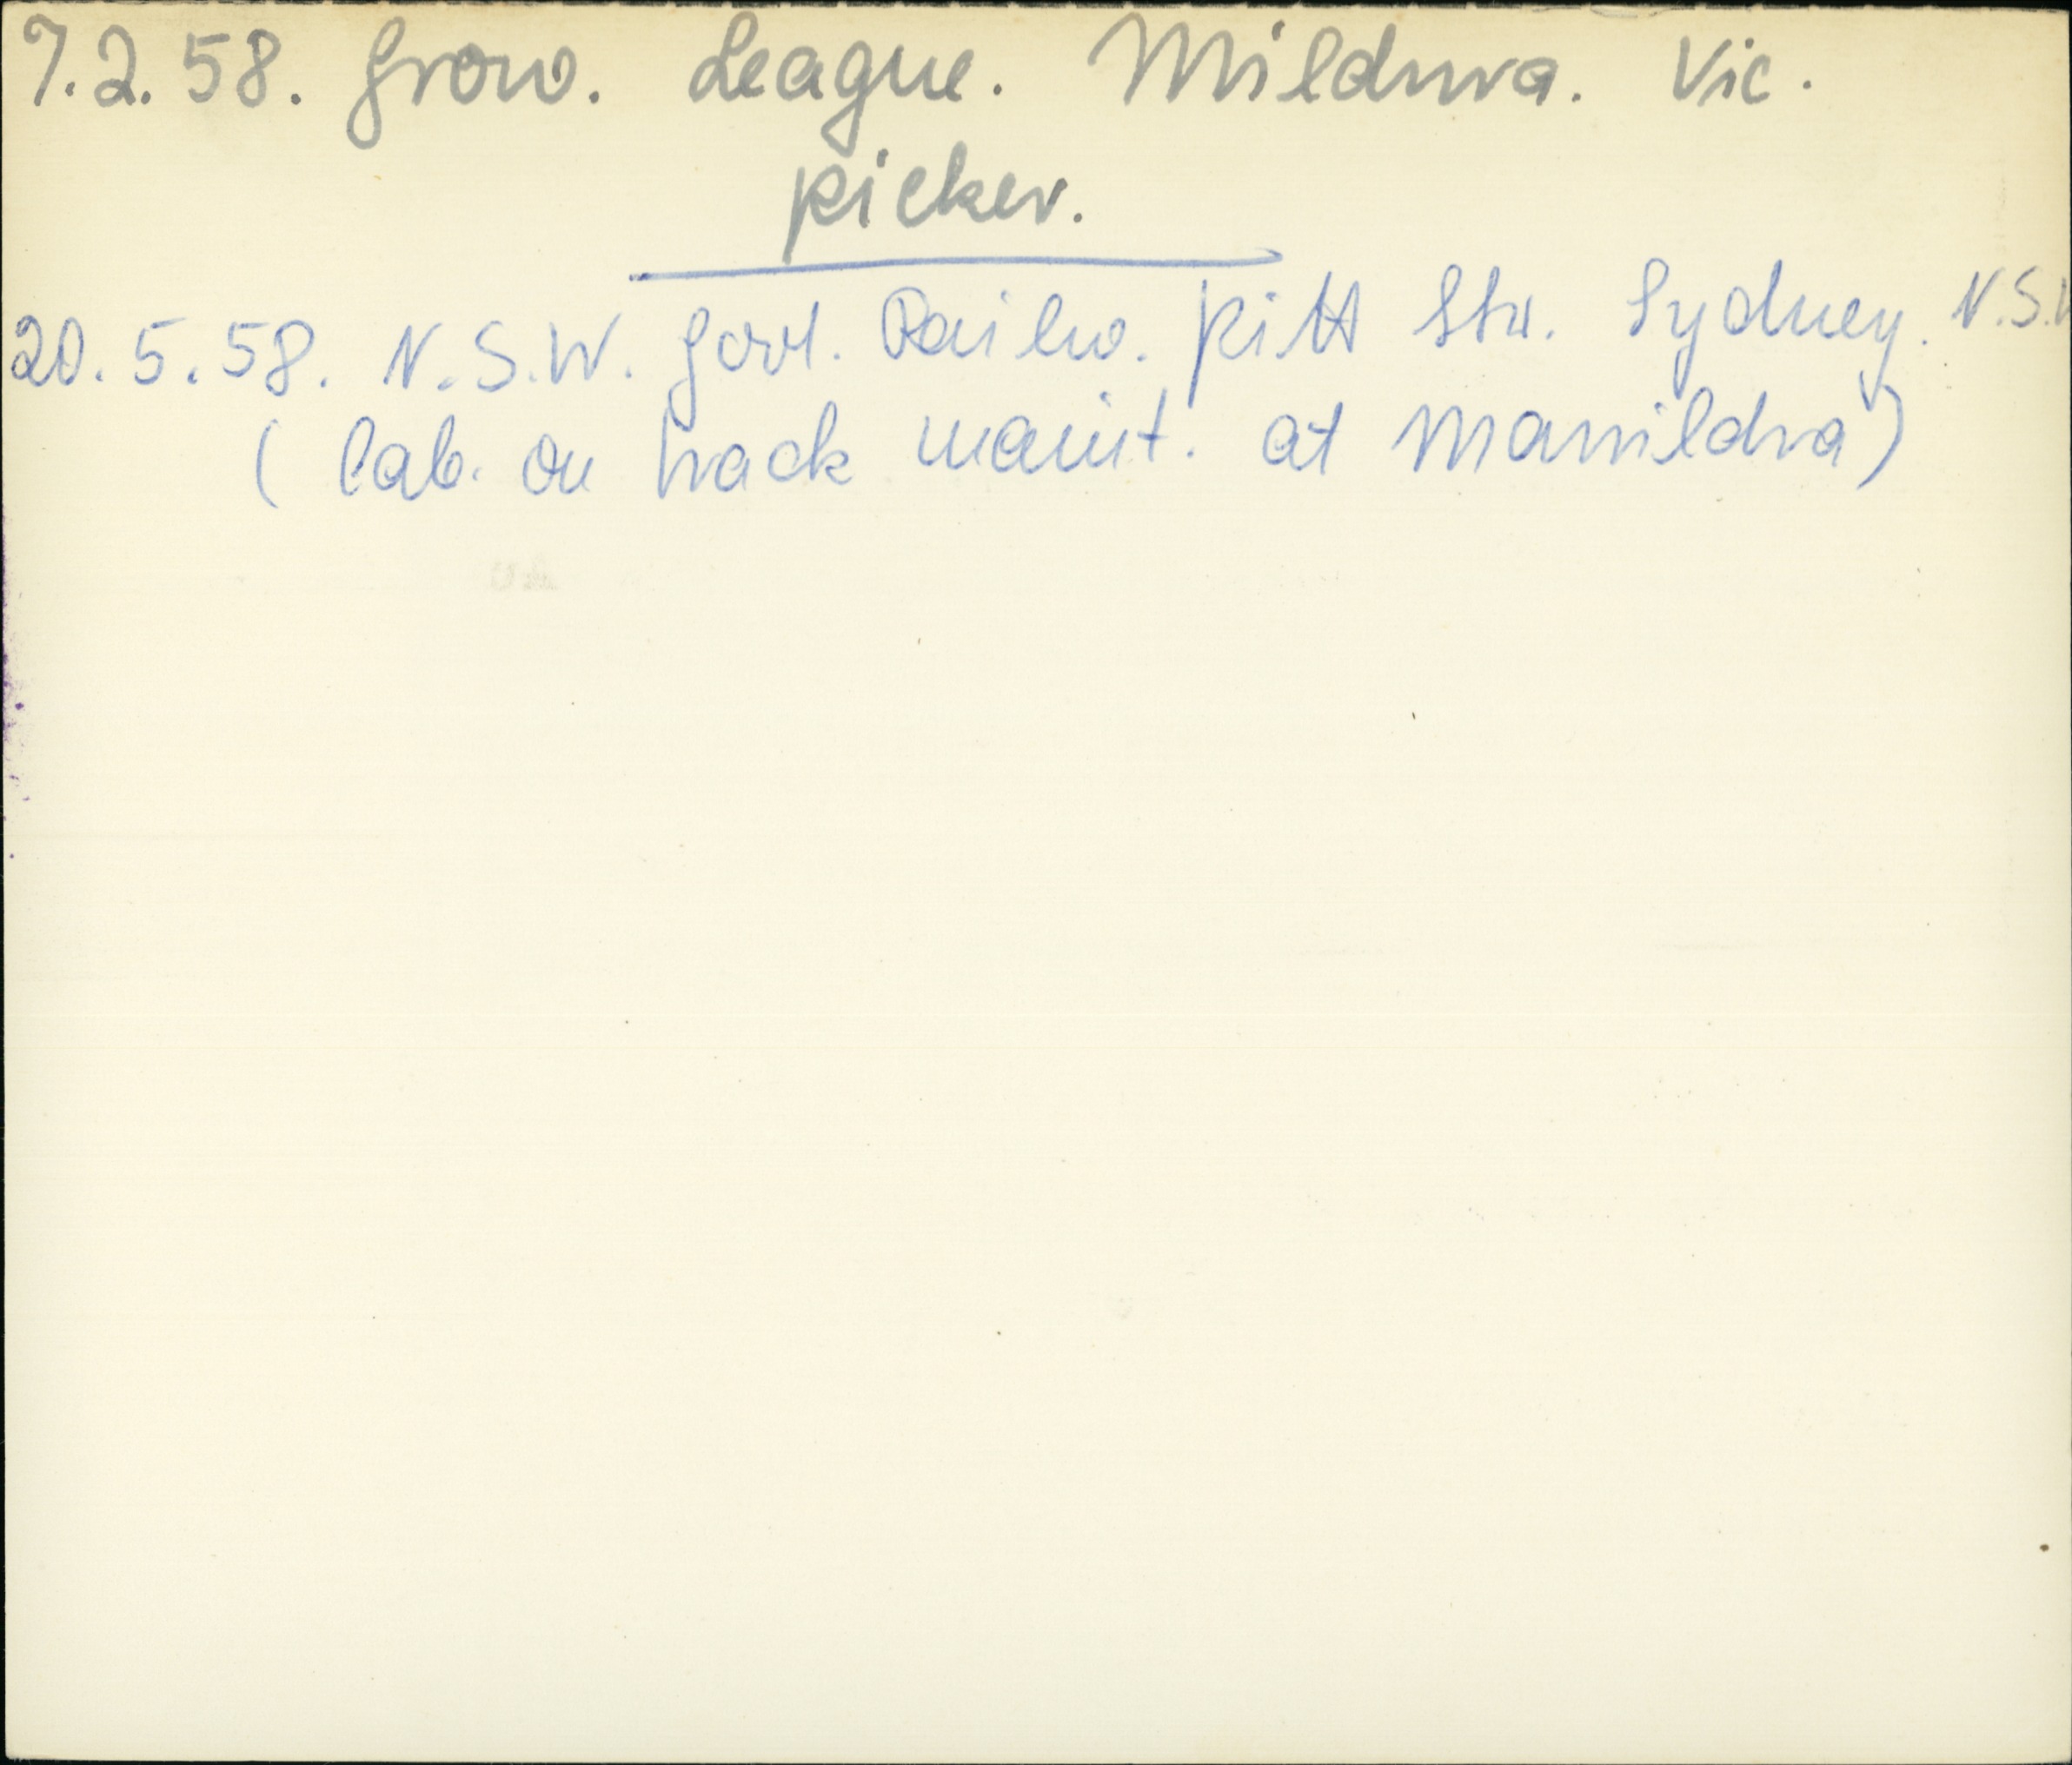 7.2.58. Grow. League. Mildura. Vic.
picker.
20.5.58. N.S.W. Govt. Railw. Pitt Str. Sydney. N.S.W
( lab. on track maint. at Manildra)